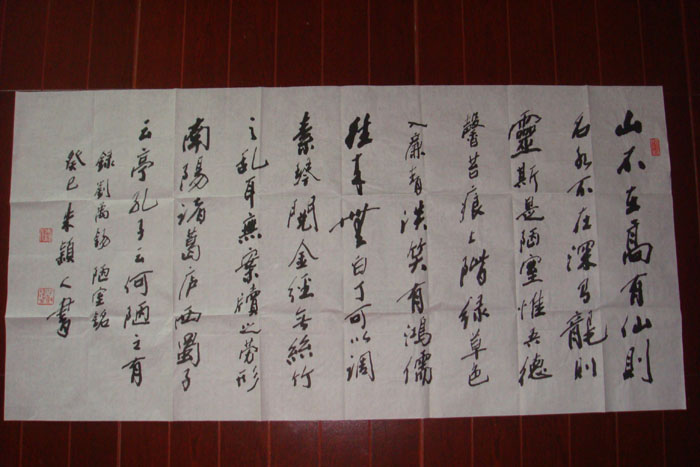 山不在高有仙則
名水不在深有龍則
靈斯是陋室惟吾德
馨苔痕上階綠草色
入簾青談笑有鴻儒
往来無白丁可以調
素琴閱金經無絲竹
之乱耳無案牘之勞形
南陽諸葛庐西蜀子
云亭孔子云何陋之有
錄劉禹錫陋室銘
癸巳朱穎人書